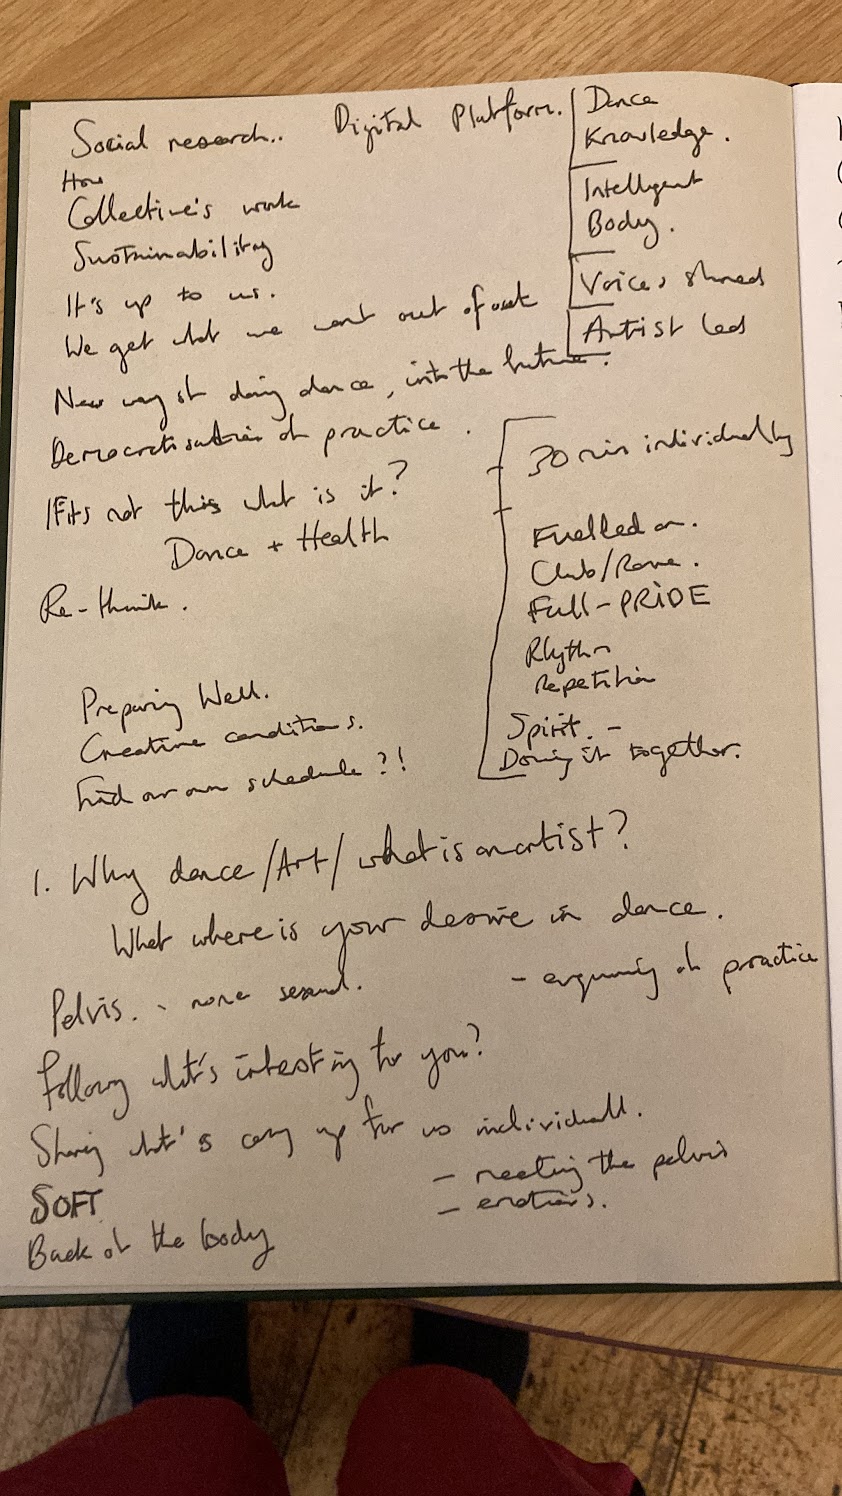 Social research..
Digital Platform.
Dance
Knowledge.
Intelligent
Body.
Voices shared
Artist Led
How
Collective's work
Sustainability
It's up to us.
We get what we want out of
New way of doing dance, into the future.
Democratisation of practice.
If its not this what is it?
Dance + Health
Re-think.
30 min individually
Fuelled on.
Club/Rave.
Full-PRIDE
Rhythm
Repetition
Spirit. -
Doing it together.
Preparing Well.
Creative conditions.
Find our own schedule?!
1. Why dance/Art/what is an artist?
What where is your desire in dance.
Pelvis. - none sexual.
- enquiring of practice
Following what's intesting for you?
Sharing what's comg up for us individuall.
SOFT
- meeting the pelvis
- emotions.
Back of the body